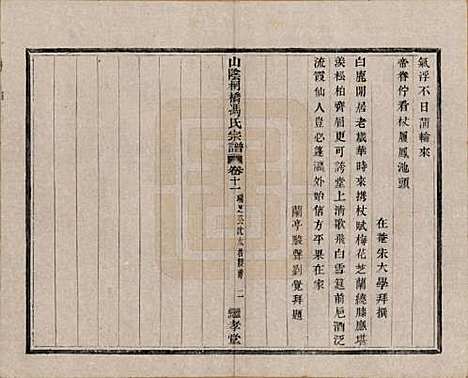 氣浮不日蒲輪來
帝眷佇看杖履鳳池頭
在菴朱大學拜撰
白鹿閒居老歲華時來携杖賦梅花芝蘭繞膝應堪
羨松柏齊眉更可誇堂上清歌飛白雪筵前巵酒泛
流霞仙人豈必蓬瀛外始信方平果在家
蘭亭駿聲劉覺拜題
山陰桐橋馮氏宗譜
卷十一
二
繼孝堂